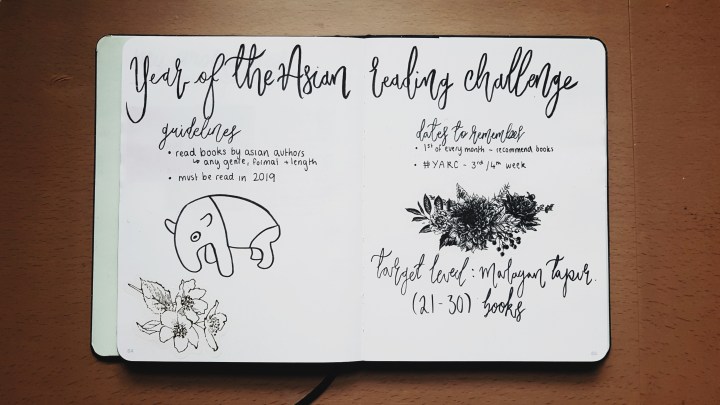 Year of the Asian reading challenge
guidelines
• read books by asian authors
↳ any genre, format + length
• must be read in 2019
dates to remember
• 1st of every month - recommend books
• #YARC - 3rd/4th week
target level: malayan tapir.
(21-30) books